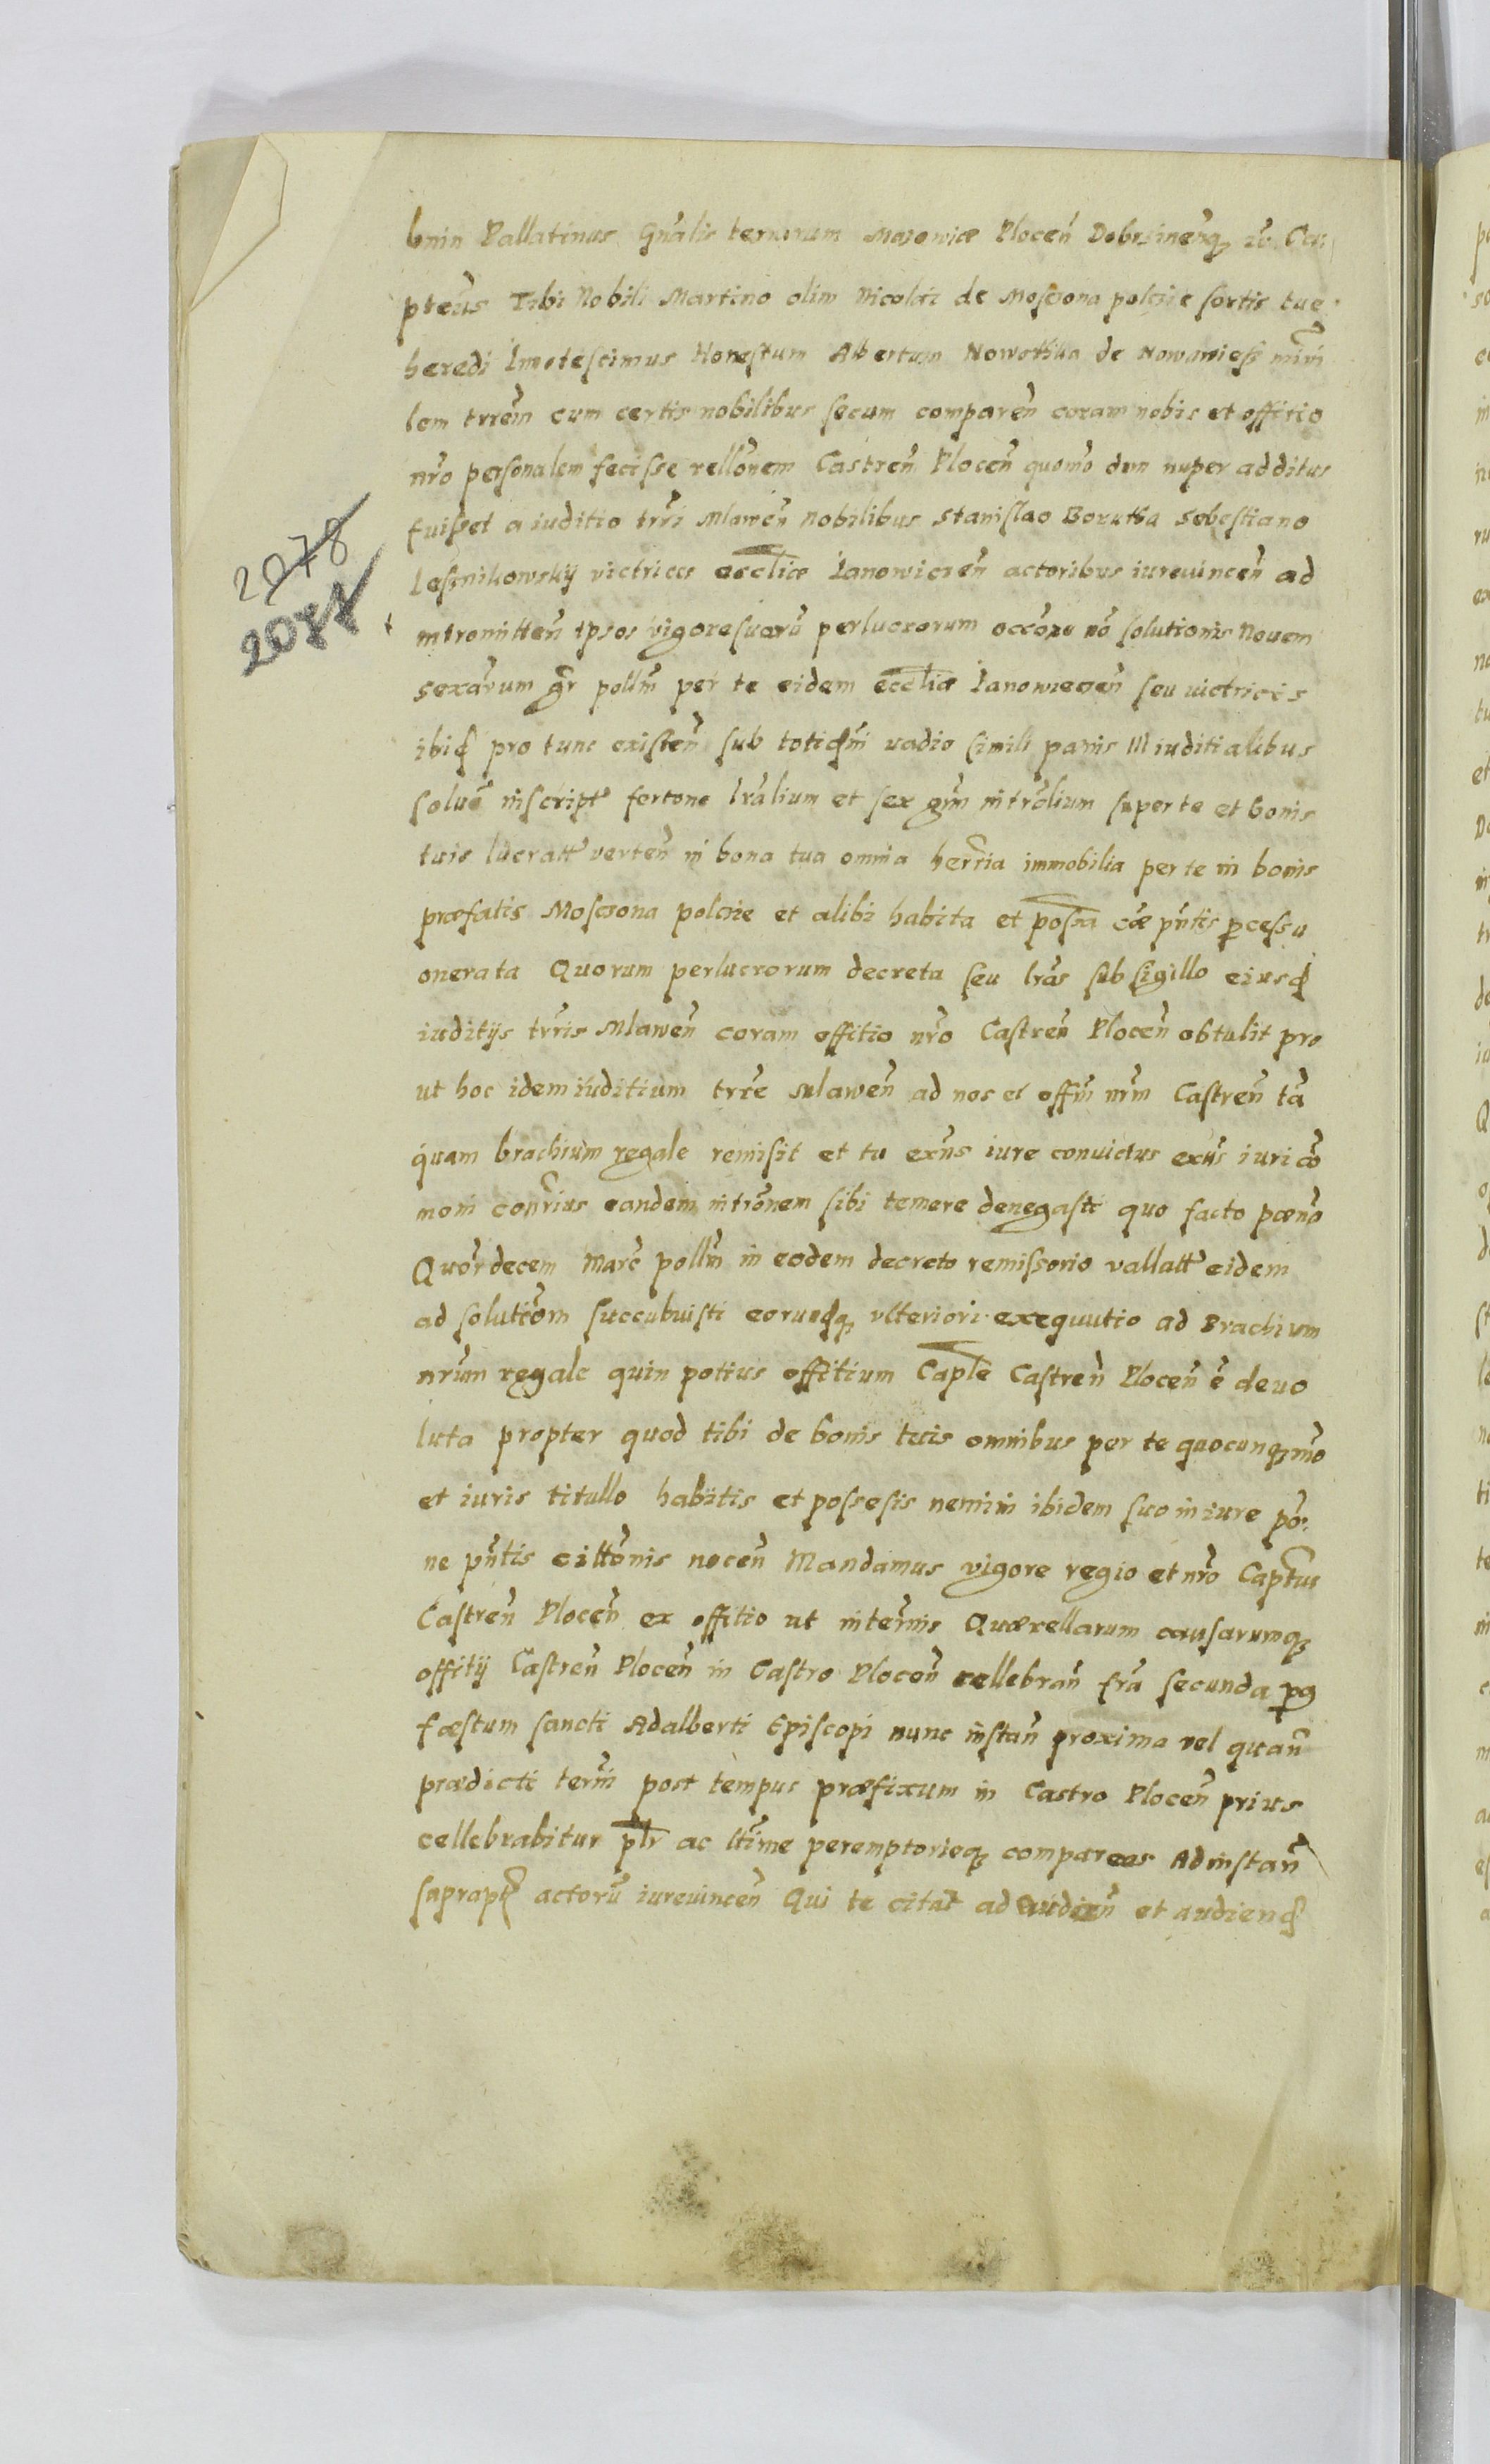 bnin Pallatinus Gnalis terrarum Mazowiæ Plocen̄ Dobrzinen̄q3
pteus Tibi Nobili Martino olim Nicolai de Mosczona polazie sortis tue
heredi Innotescimus Honestum Albertum Nowothka de Nowawiess
lem trrēm cum certis nobilibus secum comparen̄ coram nobis et offitio
nr̄o personalem fecisse rellōnem Castren̄ Plocen̄ quomo dum nuper additus
fuisset a iuditio trr̄i Mlawen̄ nobilibus Stanislao Borutha Sebestiano
Lesznikowskij victrices ecclīæ Ianowiczen̄ actoribus iurevincen̄ ad
intromitten̄ ipsos vigore suarū perlucrorum occōne nō solutionis Novem
sexārum gr̄ pollīn per te eidem ecclīæ Ianowiecen̄ seu victricis
ibid pro tunc existen̄ sub totidm̄ vadio simili panis III iuditialibus
solue inscript fertone lrālium et sex grm̄ intrōlium super te et bonis
tuis lucratt verten̄ in bona tua omnia herr̄ia immobilia per te in bonis
præfatis Mosczona polazie et alibi habita et possa cæ pn̄tis pcessu
onerata Quorum perlucrorum decreta seu lrās sub sigillo eiusd
iuditijs trr̄is Mlawen̄ coram offitio nr̄o Castren̄ Plocen̄ obtulit pro
ut hoc idem iuditium trr̄e Mlawen̄ ad nos et offm̄ nr̄m Castren̄ tā
quam brachium regale remisit et tu exn̄s iure convictus exn̄s iuri cō
moni conr̄ius eandem intrōnem sibi temere denegasti quo facto pænō
Quōr decem Marc̄ pollīn in eodem decreto remissorio vallatt eidem
ad solutiōm succubuisti eorundq3 ulteriori exequutio ad Brachium
nrūm regale quin potius offitium Caple Castren̄ Plocen̄ ē devo
luta propter quod tibi de bonis tuis omnibus per te quocunq3 mō
et iuris titullo habitis et possesis nemini ibidem suo in iure pō:
ne pn̄tis cittōnis nocen̄ Mandamus vigore regio et nr̄o Captus
Castren̄ Plocen̄ ex offitio ut in termīs Quærellarum causarumq3
offitij Castren̄ Plocen̄ in Castro Plocen̄ cellebran̄ frā secunda p9
fæstum sancti Adalberti Episcopi nunc instan̄ proxima vel quan̄
prædicti term̄i post tempus præfixum in Castro Plocen̄ prius
cellebrabitur plr̄ ac ltīme peremptorieq3 compareas Ad instan̄
suprapt actorū iurevincen̄ Qui te citat ad viden̄ et audiend
2078
2077